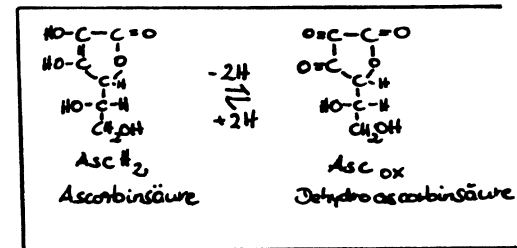 HO-C-C=O
HO-C O
C-H
HO-C-H
CH2OH
AscH2
Ascorbinsäure
-2H
+2H
O=C-C=O
O=C O
C-H
HO-C-H
CH2OH
Asc ox
Dehydroascorbinsäure